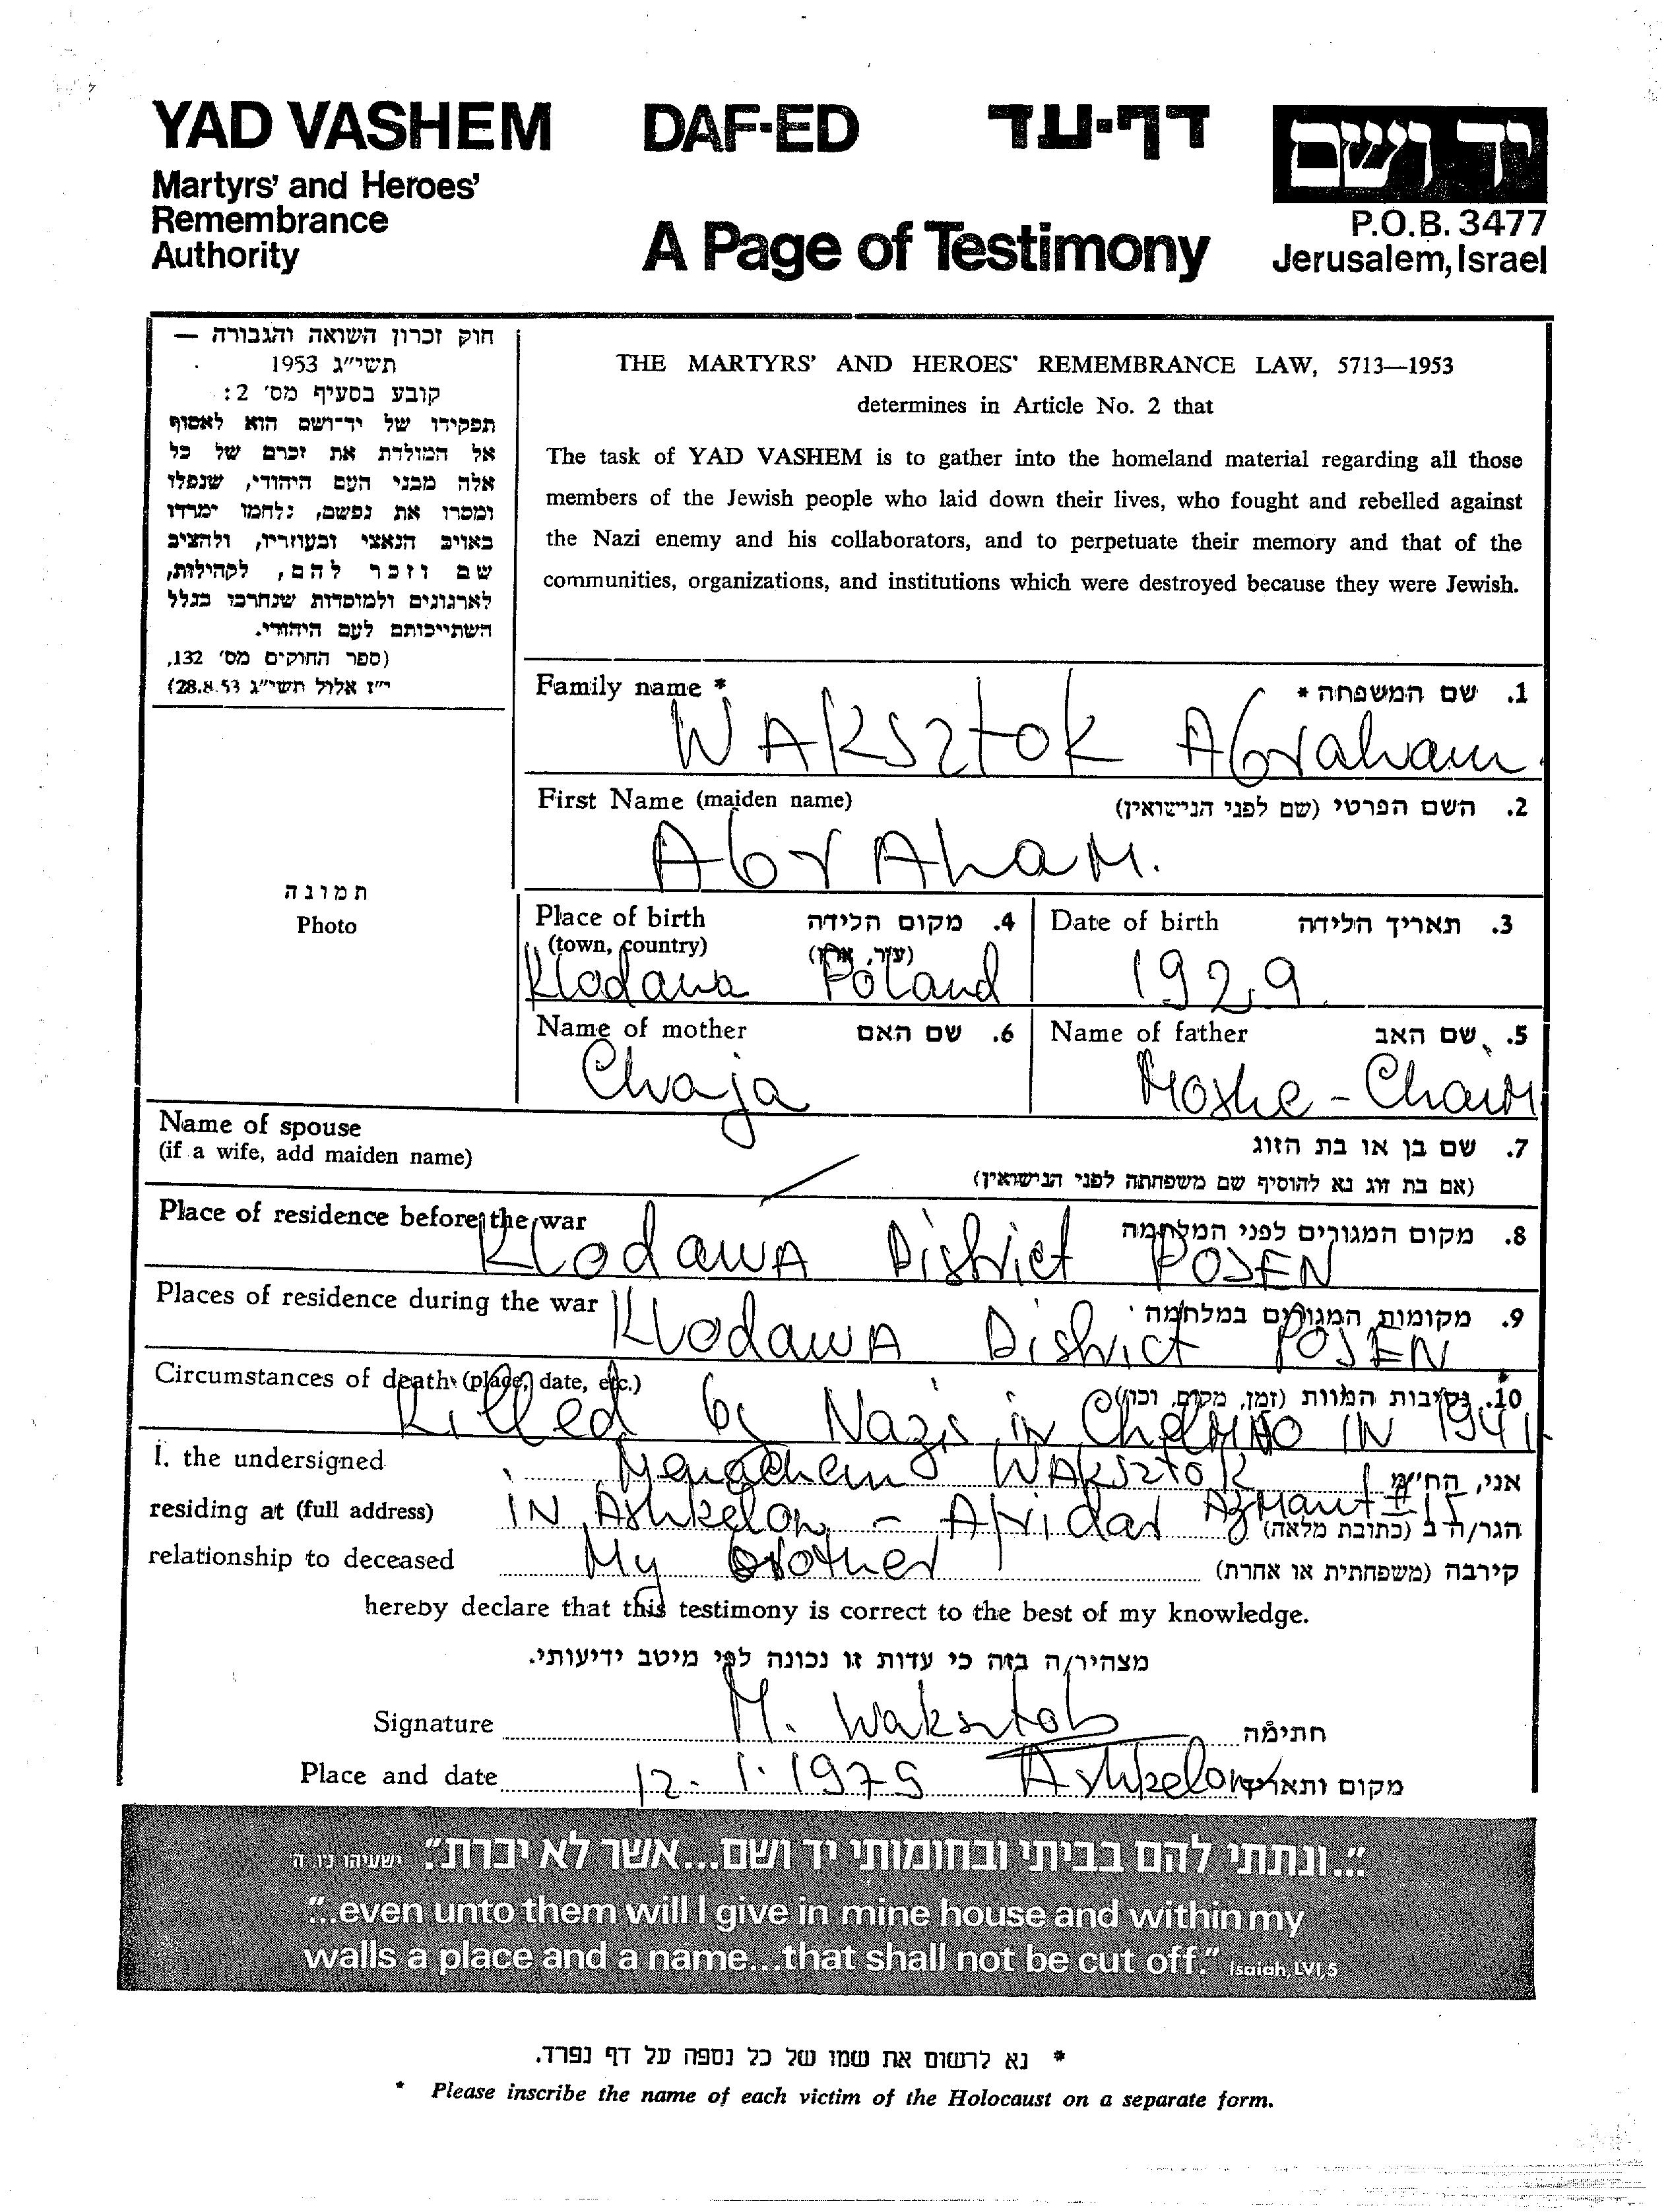 YAD VASHEM DAF-ED דף-עד
יד ושם
Martyrs' and Heroes'
Remembrance
Authority
A Page of Testimony
P.O.B. 3477
Jerusalem, Israel
חוק זכרון השואה והגבורה —
תשי"ג 1953
קובע בסעיף מס' 2:
תפקידו של יד־ושם הוא לאסוף
אל המולדת את זכרם של כל
אלה מבני העם היהודי, שנפלו
ומסרו את נפשם, נלחמו ומרדו
באויב הנאצי ובעוזריו, ולהציב
שם וזכר להם, לקהילות,
לארגונים ולמוסדות שנחרבו בגלל
השתייכותם לעם היהודי.
(ספר החוקים מס' 132,
י"ז אלול תשי"ג 28.8.53)
THE MARTYRS' AND HEROES' REMEMBRANCE LAW, 5713—1953
determines in Article No. 2 that
The task of YAD VASHEM is to gather into the homeland material regarding all those
members of the Jewish people who laid down their lives, who fought and rebelled against
the Nazi enemy and his collaborators, and to perpetuate their memory and that of the
communities, organizations, and institutions which were destroyed because they were Jewish.
תמונה
Photo
Family name * 1. שם המשפחה *
WAKSztok Abraham
First Name (maiden name) 2. השם הפרטי (שם לפני הנישואין)
AbrAhaM.
Place of birth 4. מקום הלידה
(town, country) (עיר, ארץ)
Klodawa Poland
Date of birth 3. תאריך הלידה
1929
Name of mother 6. שם האם
Chaja
Name of father 5. שם האב
Moshe - Chaim
Name of spouse 7. שם בן או בת הזוג
(if a wife, add maiden name) (אם בת זוג נא להוסיף שם משפחתה לפני הנישואין)
Place of residence before the war 8. מקום המגורים לפני המלחמה
KlodawA District POSEN
Places of residence during the war 9. מקומות המגורים במלחמה
KlodawA District POSEN
Circumstances of death (place, date, etc.) 10. נסיבות המוות (זמן, מקום, וכו')
Killed by Nazis in ChelMNO IN 1941
I, the undersigned Menachem WAKSztok אני, הח"מ
residing at (full address) IN Ashkelon - Afridar #15 הגר/ה ב (כתובת מלאה)
relationship to deceased My brother קירבה (משפחתית או אחרת)
hereby declare that this testimony is correct to the best of my knowledge.
מצהיר/ה בזה כי עדות זו נכונה לפי מיטב ידיעותי.
Signature M. Waksztok חתימה
Place and date 12. 1. 1975 Ashkelon מקום ותאריך
"...ונתתי להם בביתי ובחומותי יד ושם...אשר לא יכרת." ישעיהו נ"ו, ה'
"...even unto them will I give in mine house and within my
walls a place and a name...that shall not be cut off." Isaiah, LVI, 5
* נא לרשום את שמו של כל נספה על דף נפרד.
* Please inscribe the name of each victim of the Holocaust on a separate form.